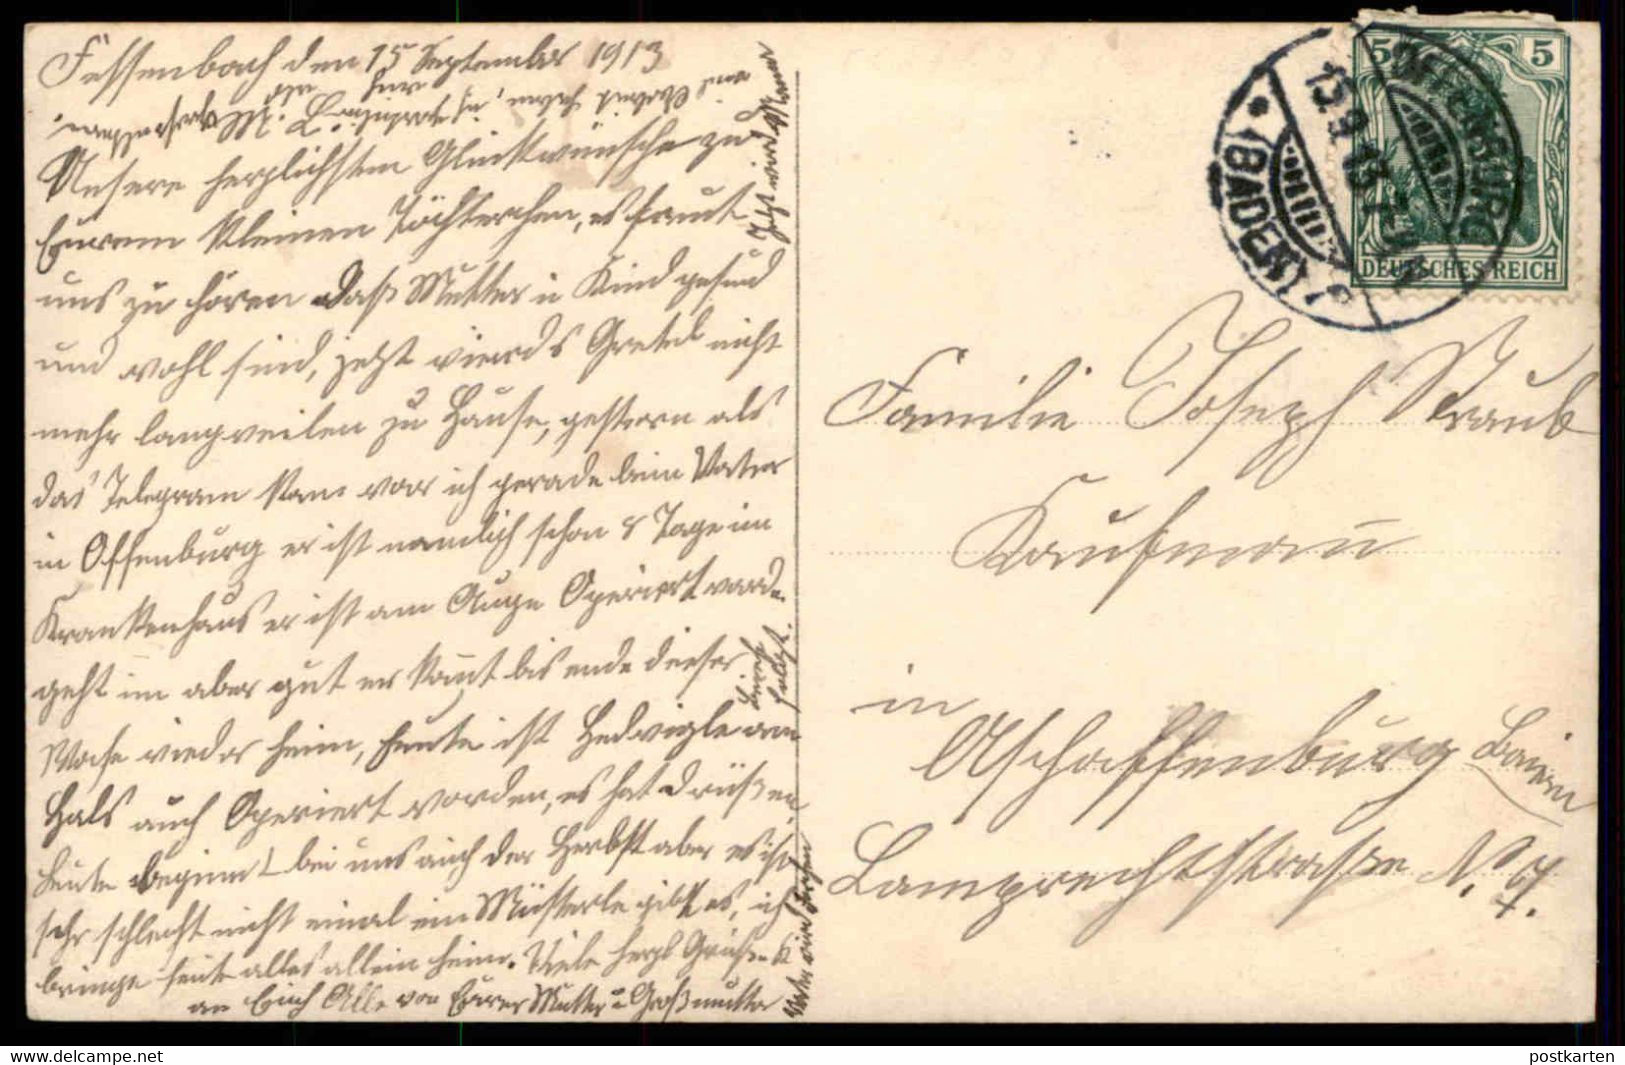 Fessenbach den 15 September 1913
Unsere herzlichsten Glückwünsche zu
Eurem kleinen Töchterchen, es freut
uns zu hören daß Mutter u Kind gesund
und wohl sind, jetzt wirds Gretel nicht
mehr langweilen zu Hause, gestern als
das Telegram kam war ich gerade beim Vater
in Offenburg er ist nämlich schon 8 Tage im
Krankenhaus er ist am Auge Operiert worde.
geht im aber gut er kom̄t bis ende dieser
Woche wieder heim, heute ist Hedwigle am
Hals auch Operiert worden, es hat Drüßen,
heute beginnt bei uns auch der Herbst aber es ist
sehr schlecht nicht einmal ein Müsterle gibt es, ich
bringe heute alles allein heim. Viele herzl Grüße
an Euch Alle von Eurer Mutter u Großmutter
5 5
DEUTSCHES REICH
OFFENBURG
15.9.13.
(BADEN)
Familie Joseph Straub
Kaufman̄
in
Aschaffenburg Baiern
Lamprechtstraße N. 7.
postkarten
www.delcampe.net